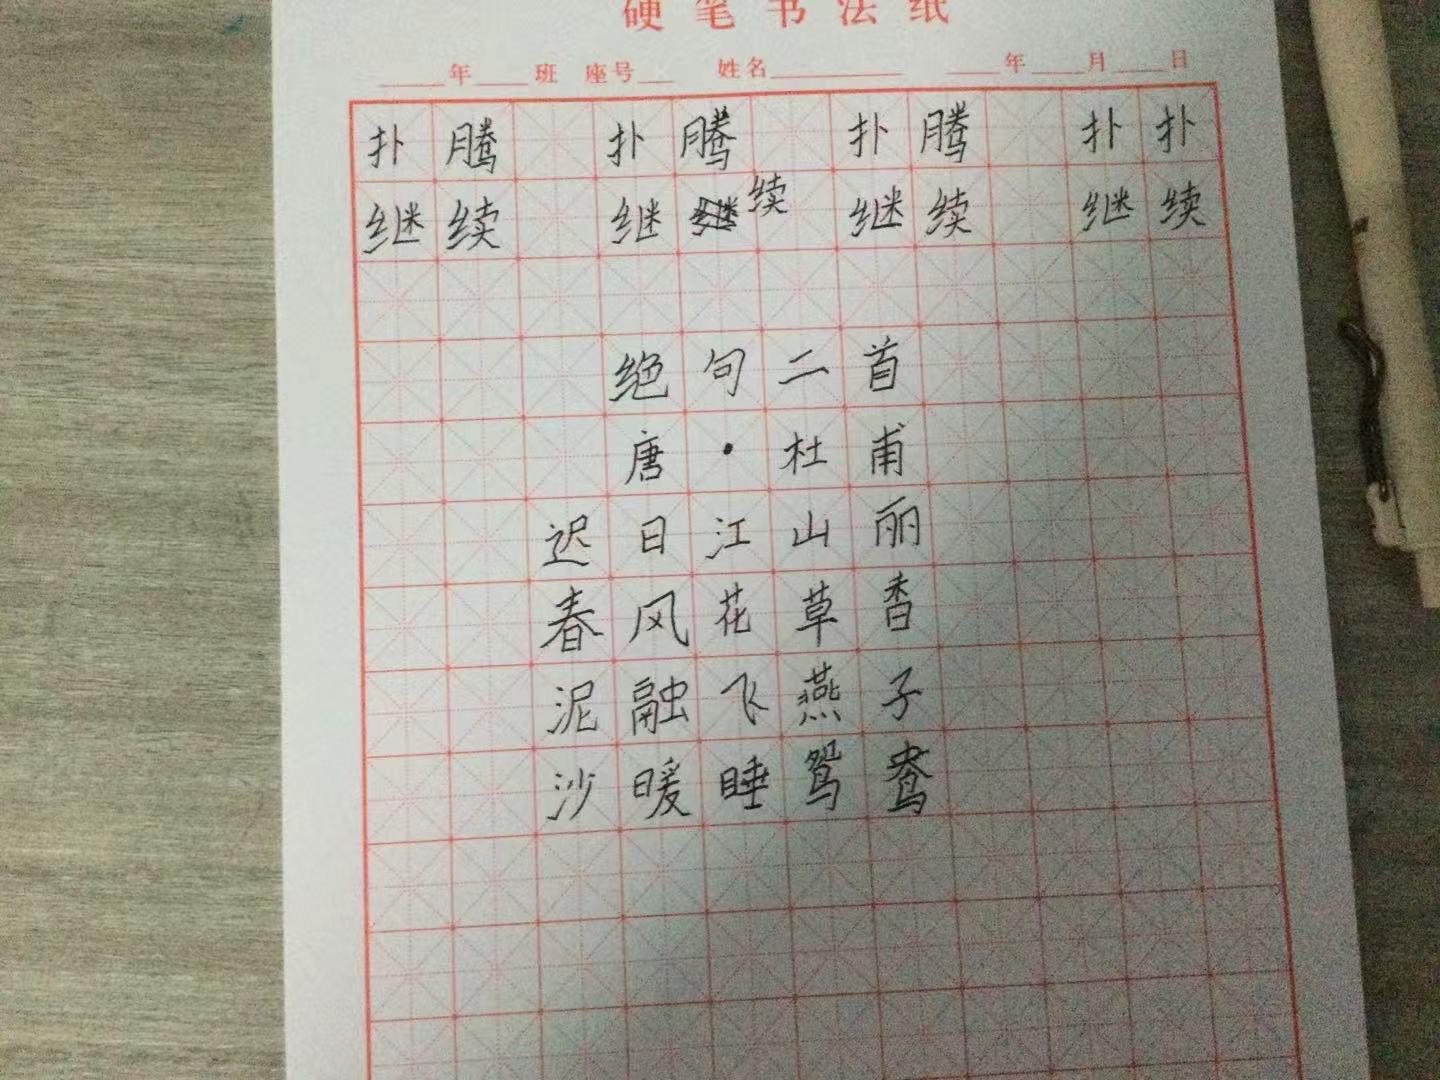 硬笔书法纸
年 班 座号 姓名 年 月 日
扑腾 扑腾 扑腾 扑扑
继续 继续 继续 继续
绝句二首
唐·杜甫
迟日江山丽
春风花草香
泥融飞燕子
沙暖睡鸳鸯